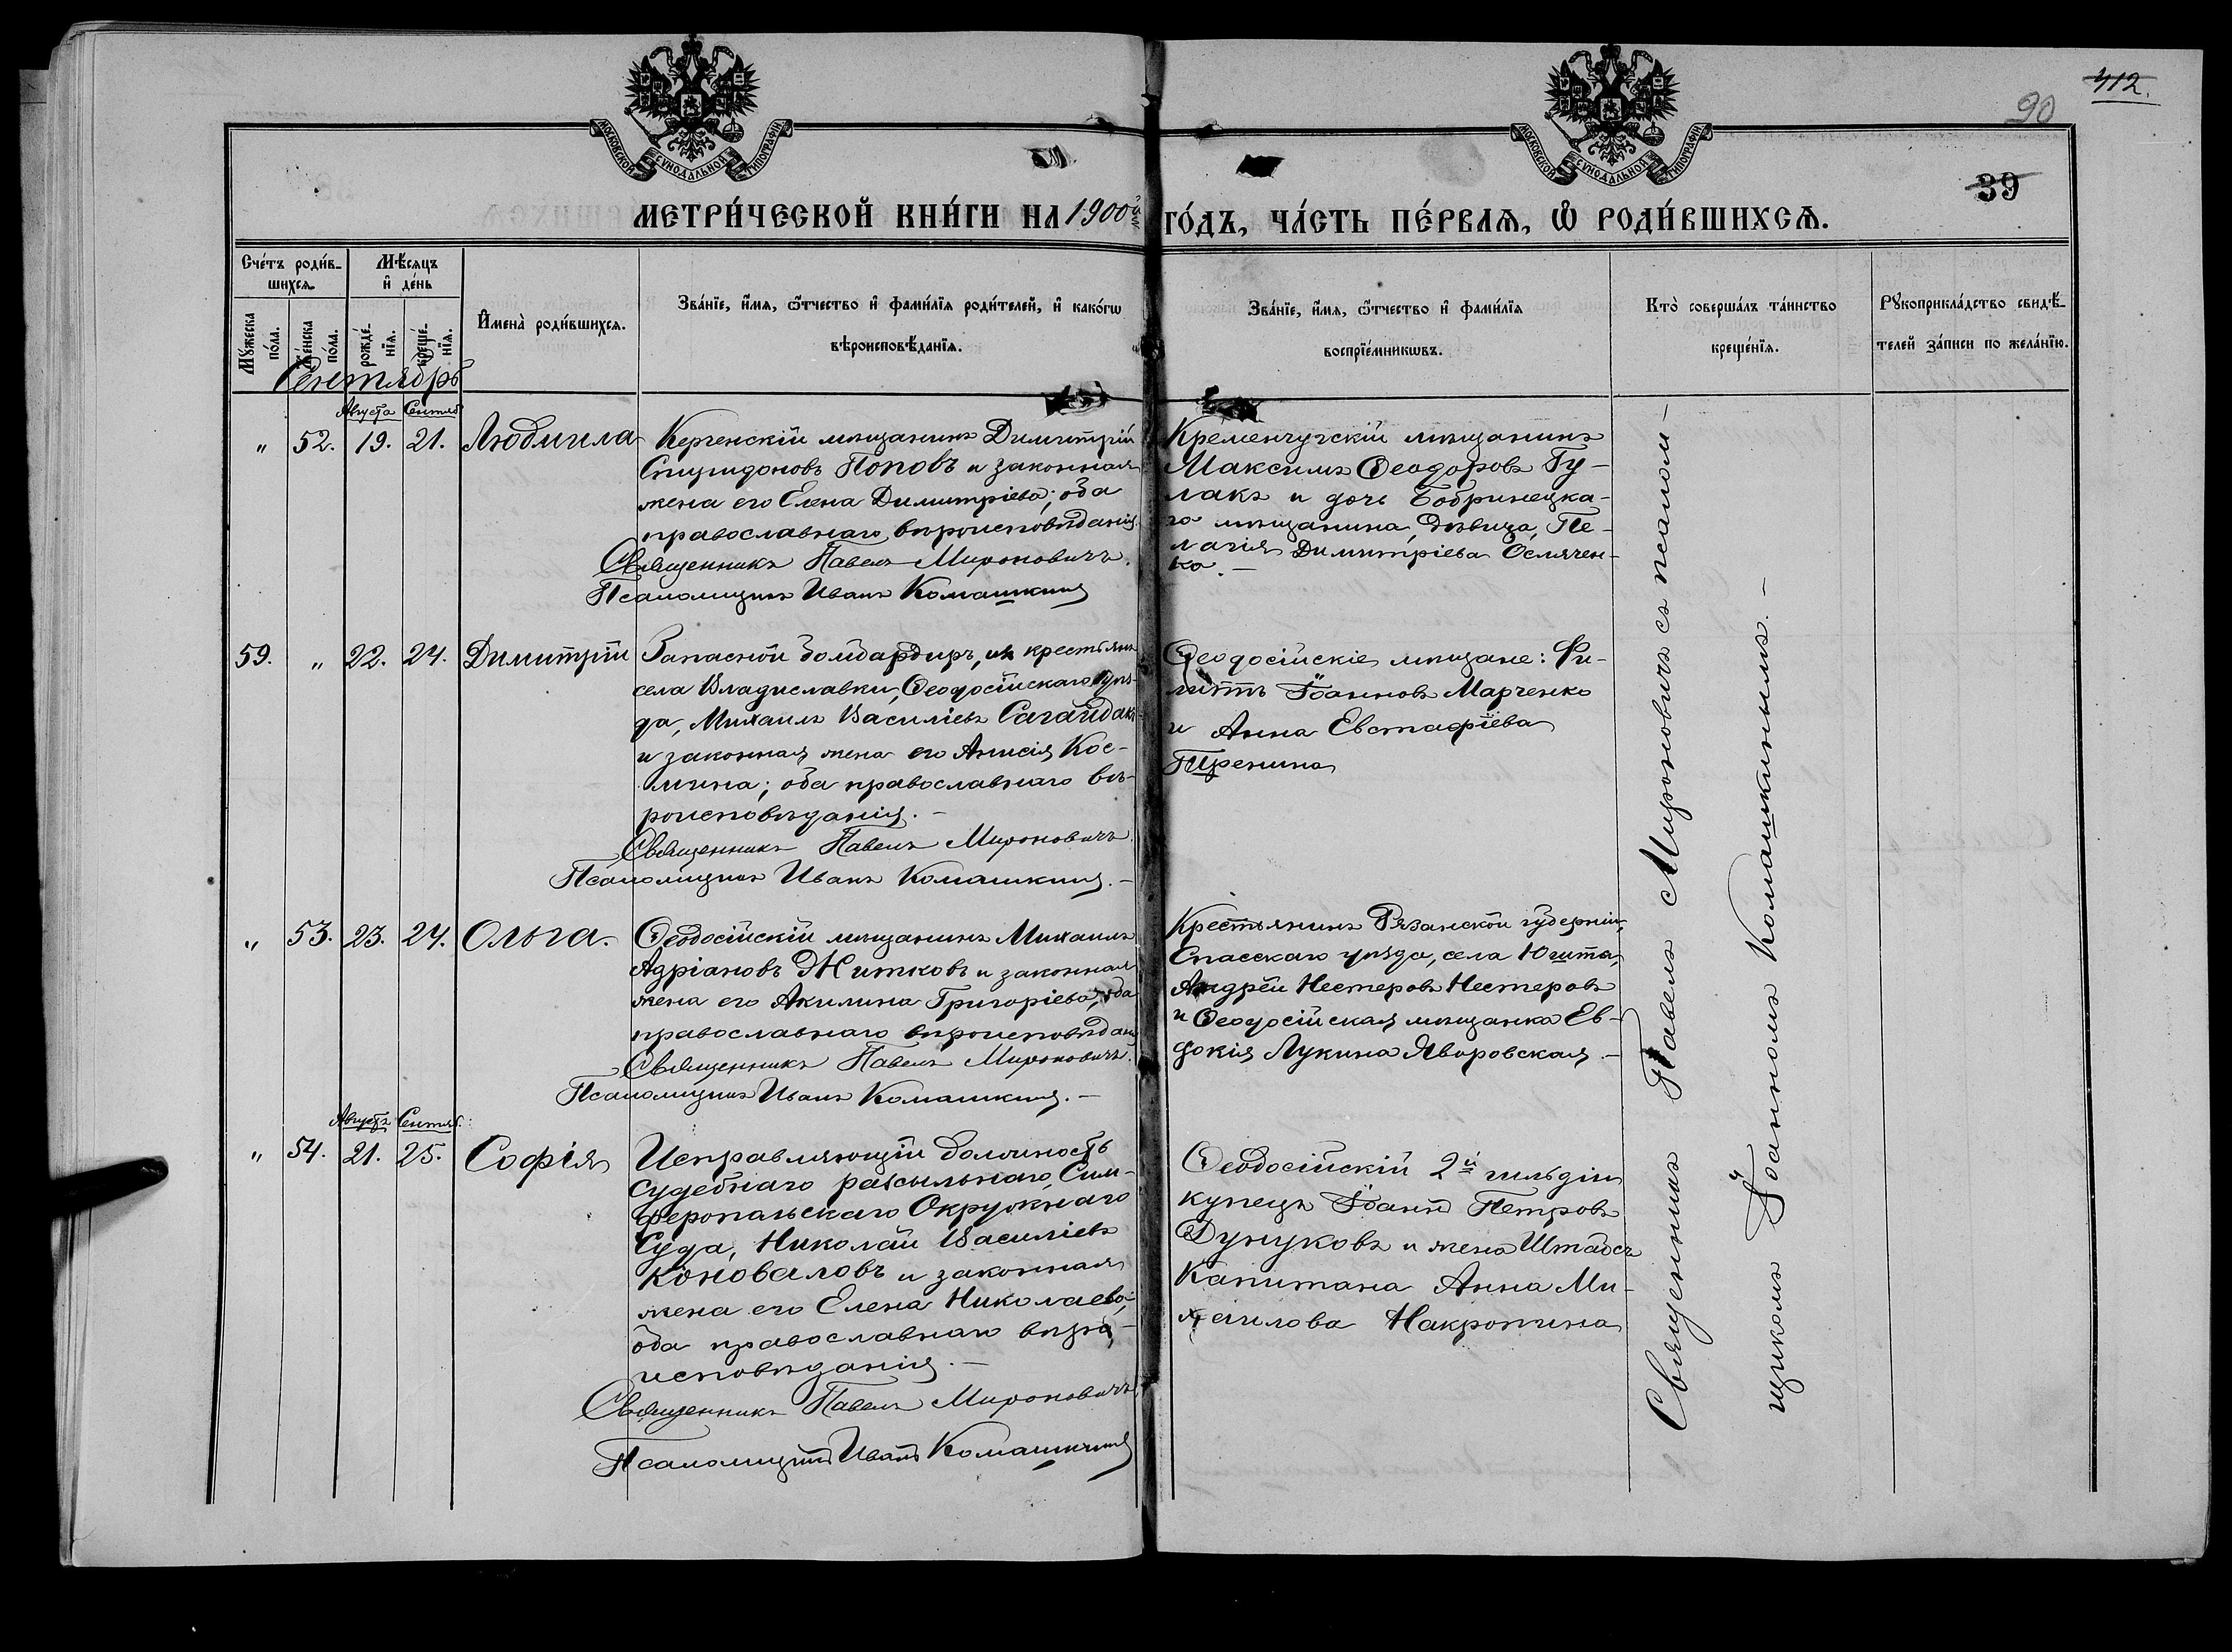 412.
90
39
МОСКОВСКОЙ СѴНОДАЛЬНОЙ ТИПОГРАФІИ
МОСКОВСКОЙ СѴНОДАЛЬНОЙ ТИПОГРАФІИ
МЕТРИ́ЧЕСКОЙ КНИ́ГИ НА 1900й ГО́ДЪ, ЧА́СТЬ ПЕ́РВАѦ, Ѡ РОДИ́ВШИХСѦ.
Сче́тъ роди́в-
шихсѧ.
Мѣ́сяцъ
и҆ де́нь
Мꙋ́жеска
по́ла.
Же́нска
по́ла.
рожде́-
нїѧ.
креще́-
нїѧ.
И҆мена̀ роди́вшихсѧ.
Зва́нїе, и҆́мѧ, ѻ҆́тчество и҆ фами́лїѧ роди́телей, и҆ како́гѡ
вѣроисповѣ́данїѧ.
Зва́нїе, и҆́мѧ, ѻ҆́тчество и҆ фами́лїѧ
воспрїе́мникѡвъ.
Кто̀ соверша́лъ та́инство
креще́нїѧ.
Рꙋкоприкла́дство свидѣ́-
телей за́писи по жела́нїю.
Сентябрь
Августа Сентяб.
" 52. 19. 21. Людмила
Керченскій мѣщанинъ Димитрій
Спиридоновъ Поповъ и законная
жена его Елена Димитріева; оба
православнаго вѣроисповѣданія.
Священникъ Павелъ Мироновичъ.
Псаломщикъ Иванъ Комашкинъ
Кременчугскій мѣщанинъ
Максимъ Ѳеодоровъ Гу-
лакъ и дочь Бобринецка-
го мѣщанина, дѣвица, Пе-
лагія Димитріева Осмячен-
ко. –
59. " 22. 24. Димитрій
Запасной бомбардиръ, изъ крестьянъ
села Владиславки, Ѳеодосійскаго уѣз-
да, Михаилъ Василіевъ Сагайдакъ
и законная жена его Анисія Кос-
мина; оба православнаго вѣ-
роисповѣданія. –
Священникъ Павелъ Мироновичъ.
Псаломщикъ Иванъ Комашкинъ. –
Ѳеодосійскіе мѣщане: Фи-
липпъ Іоанновъ Марченко
и Анна Евстафіева
Пренина
" 53. 23. 24. Ольга.
Ѳеодосійскій мѣщанинъ Михаилъ
Адріановъ Житковъ и законная
жена его Акилина Григоріева; оба
православнаго вѣроисповѣданія
Священникъ Павелъ Мироновичъ.
Псаломщикъ Иванъ Комашкинъ. –
Крестьянинъ Рязанской губерніи,
Спасскаго уѣзда, села Юшта,
Андрей Нестеровъ Нестеровъ
и Ѳеодосійская мѣщанка Ев-
докія Лукина Яворовская –
Августа Сентяб.
" 54. 21. 25. Софія
Исправляющій должность
судебнаго разсыльнаго, Сим-
феропольскаго Окружнаго
Суда, Николай Василіевъ
Коноваловъ и законная
жена его Елена Николаева;
оба православнаго вѣро-
исповѣданія. –
Священникъ Павелъ Мироновичъ
Псаломщикъ Иванъ Комашкинъ
Ѳеодосійскій 2й гильдіи
купецъ Іоаннъ Петровъ
Дунуковъ и жена Штабсъ
Капитана Анна Ми-
хаилова Накропина
Священникъ Павелъ Мироновичъ съ псалом-
щикомъ Іоанномъ Комашкинымъ. –